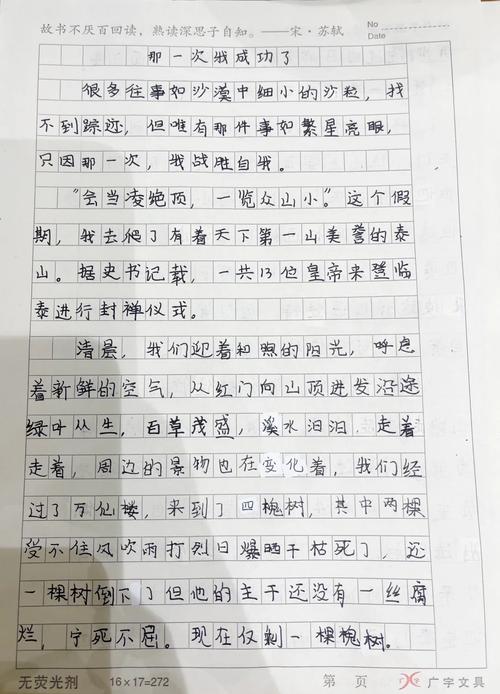 故书不厌百回读,熟读深思子自知。——宋·苏轼
No
Date
那一次我成功了
很多往事如沙漠中细小的沙粒,找
不到踪迹,但唯有那件事如繁星亮眼,
只因那一次,我战胜自我。
“会当凌绝顶,一览众山小。”这个假
期,我去爬了有着天下第一山美誉的泰
山。据史书记载,一共13位皇帝来登临
泰进行封禅仪式。
清晨,我们迎着和照的阳光,呼息
着新鲜的空气,从红门向山顶进发沿途
绿叶从生,百草茂盛,溪水汩汩,走着
走着,周边的景物也在变化着,我们经
过了万仙楼,来到了四槐树,其中两棵
受不住风吹雨打烈日爆晒干枯死了,还
一棵树倒下了但他的主干还没有一丝腐
烂,宁死不屈。现在仅剩一棵槐树.
无荧光剂
16×17=272
第 页
广宇文具